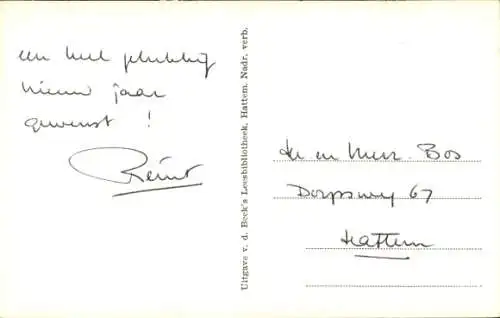 een heel gelukkig
nieuw jaar
gewenst !
Reint
Uitgave v. d. Beek's Leesbibliotheek, Hattem. Nadr. verb.
Hr en Mevr. Bos
Dorpsweg 67
Hattem